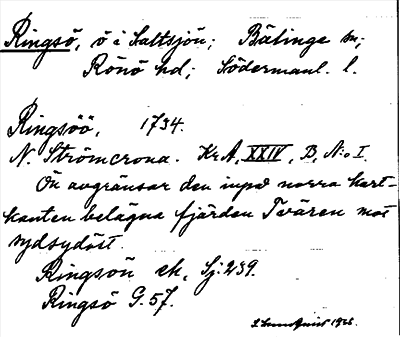 Ringsö, ö i Saltsjön; Bälinge sn;
Rönö hd; Södermanl. l.
Ringsöö, 1734.
N. Strömcrona. Kr.A, XXIV, B, N:o I.
Ön avgränsar den inpå norra kart-
kanten belägna fjärden Tvären mot
sydsydöst.
Ringsön ek, Sj: 239.
Ringsö G. 57.